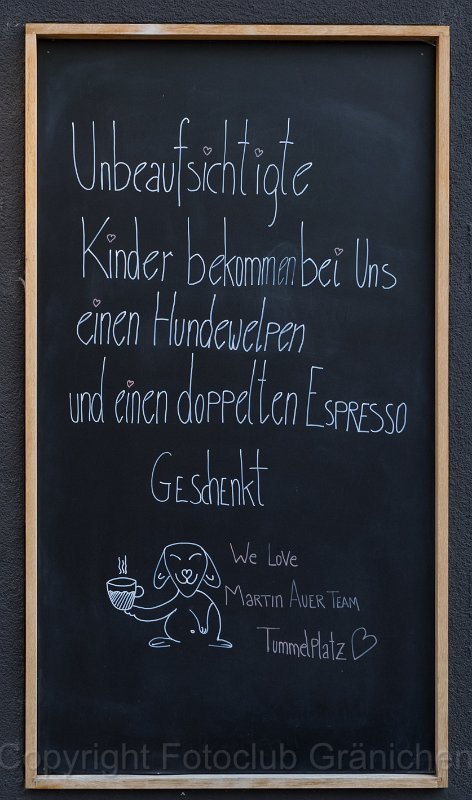 Unbeaufsichtigte
Kinder bekommen bei Uns
einen Hundewelpen
und einen doppelten ESPRESSO
GEschENKt
We Love
MARTIN AUER TEAM
TummelPlatz
Copyright Fotoclub Gränichen